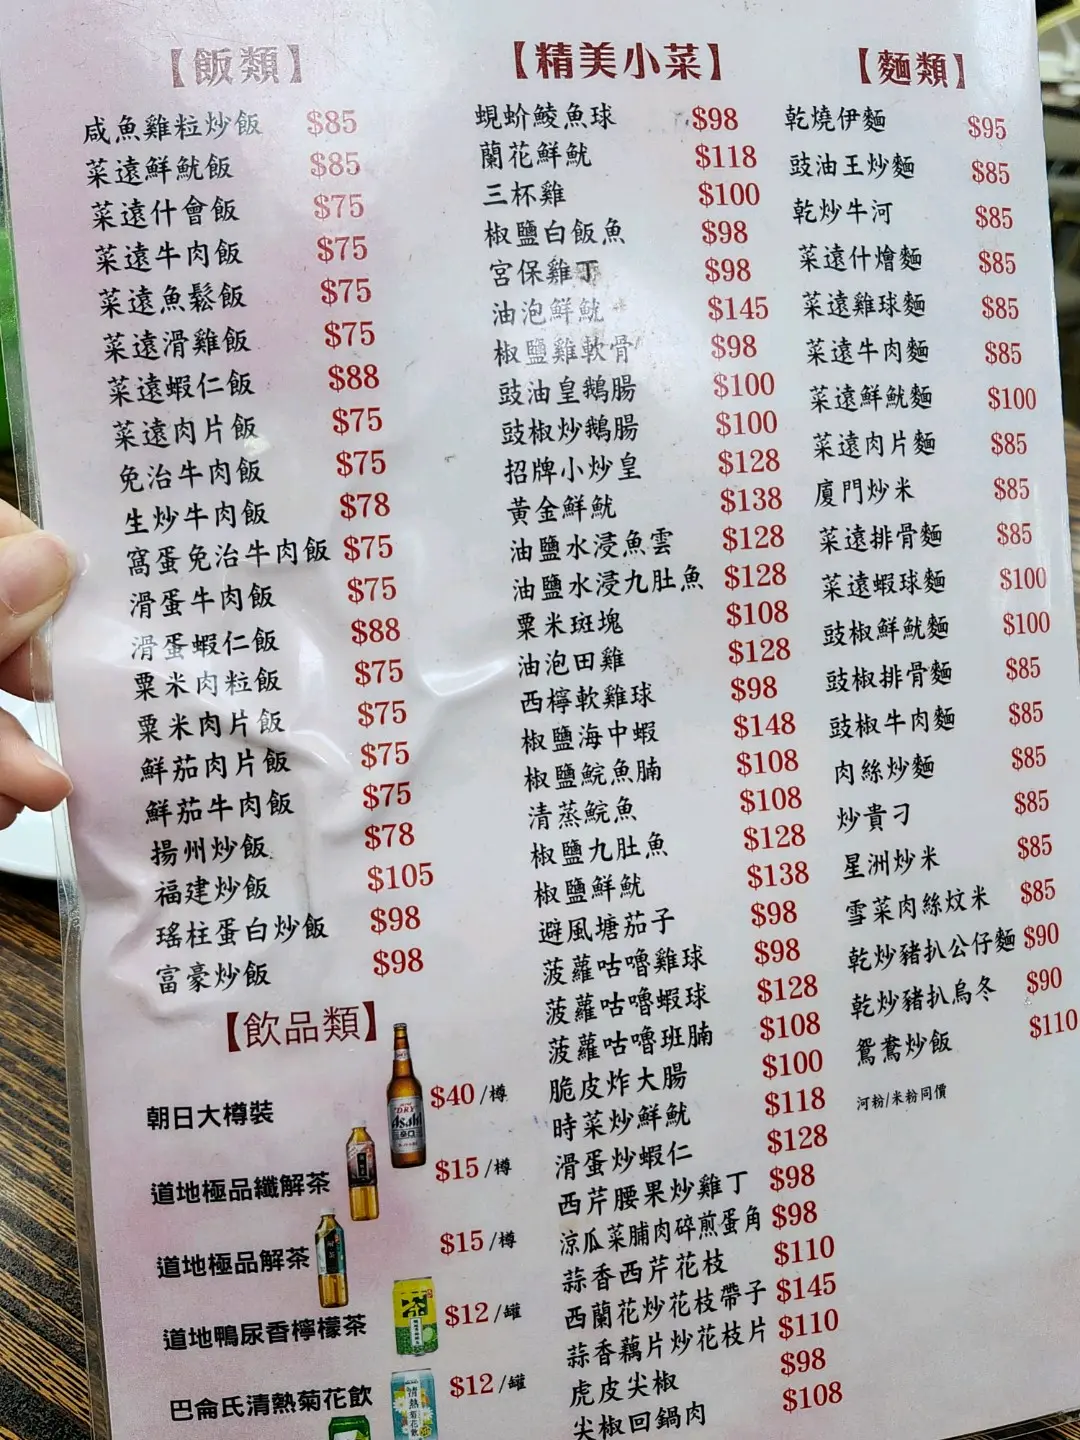 【飯類】
咸魚雞粒炒飯 $85
菜遠鮮魷飯 $85
菜遠什會飯 $75
菜遠牛肉飯 $75
菜遠魚鬆飯 $75
菜遠滑雞飯 $75
菜遠蝦仁飯 $88
菜遠肉片飯 $75
免治牛肉飯 $75
生炒牛肉飯 $78
窩蛋免治牛肉飯 $75
滑蛋牛肉飯 $75
滑蛋蝦仁飯 $88
粟米肉粒飯 $75
粟米肉片飯 $75
鮮茄肉片飯 $75
鮮茄牛肉飯 $75
揚州炒飯 $78
福建炒飯 $105
瑤柱蛋白炒飯 $98
富豪炒飯 $98
【飲品類】
朝日大樽裝 $40/樽
道地極品纖解茶 $15/樽
道地極品解茶 $15/樽
道地鴨尿香檸檬茶 $12/罐
巴侖氏清熱菊花飲 $12/罐
【精美小菜】
蜆蚧鯪魚球 $98
蘭花鮮魷 $118
三杯雞 $100
椒鹽白飯魚 $98
宮保雞丁 $98
油泡鮮魷 $145
椒鹽雞軟骨 $98
豉油皇鵝腸 $100
豉椒炒鵝腸 $100
招牌小炒皇 $128
黃金鮮魷 $138
油鹽水浸魚雲 $128
油鹽水浸九肚魚 $128
粟米斑塊 $108
油泡田雞 $128
西檸軟雞球 $98
椒鹽海中蝦 $148
椒鹽鯇魚腩 $108
清蒸鯇魚 $108
椒鹽九肚魚 $128
椒鹽鮮魷 $138
避風塘茄子 $98
菠蘿咕嚕雞球 $98
菠蘿咕嚕蝦球 $128
菠蘿咕嚕班腩 $108
脆皮炸大腸 $100
時菜炒鮮魷 $118
滑蛋炒蝦仁 $128
西芹腰果炒雞丁 $98
涼瓜菜脯肉碎煎蛋角 $98
蒜香西芹花枝 $110
西蘭花炒花枝帶子 $145
蒜香藕片炒花枝片 $110
虎皮尖椒 $98
尖椒回鍋肉 $108
【麵類】
乾燒伊麵 $95
豉油王炒麵 $85
乾炒牛河 $85
菜遠什燴麵 $85
菜遠雞球麵 $85
菜遠牛肉麵 $85
菜遠鮮魷麵 $100
菜遠肉片麵 $85
廈門炒米 $85
菜遠排骨麵 $85
菜遠蝦球麵 $100
豉椒鮮魷麵 $100
豉椒排骨麵 $85
豉椒牛肉麵 $85
肉絲炒麵 $85
炒貴刁 $85
星洲炒米 $85
雪菜肉絲炆米 $85
乾炒豬扒公仔麵 $90
乾炒豬扒烏冬 $90
鴛鴦炒飯 $110
河粉/米粉同價